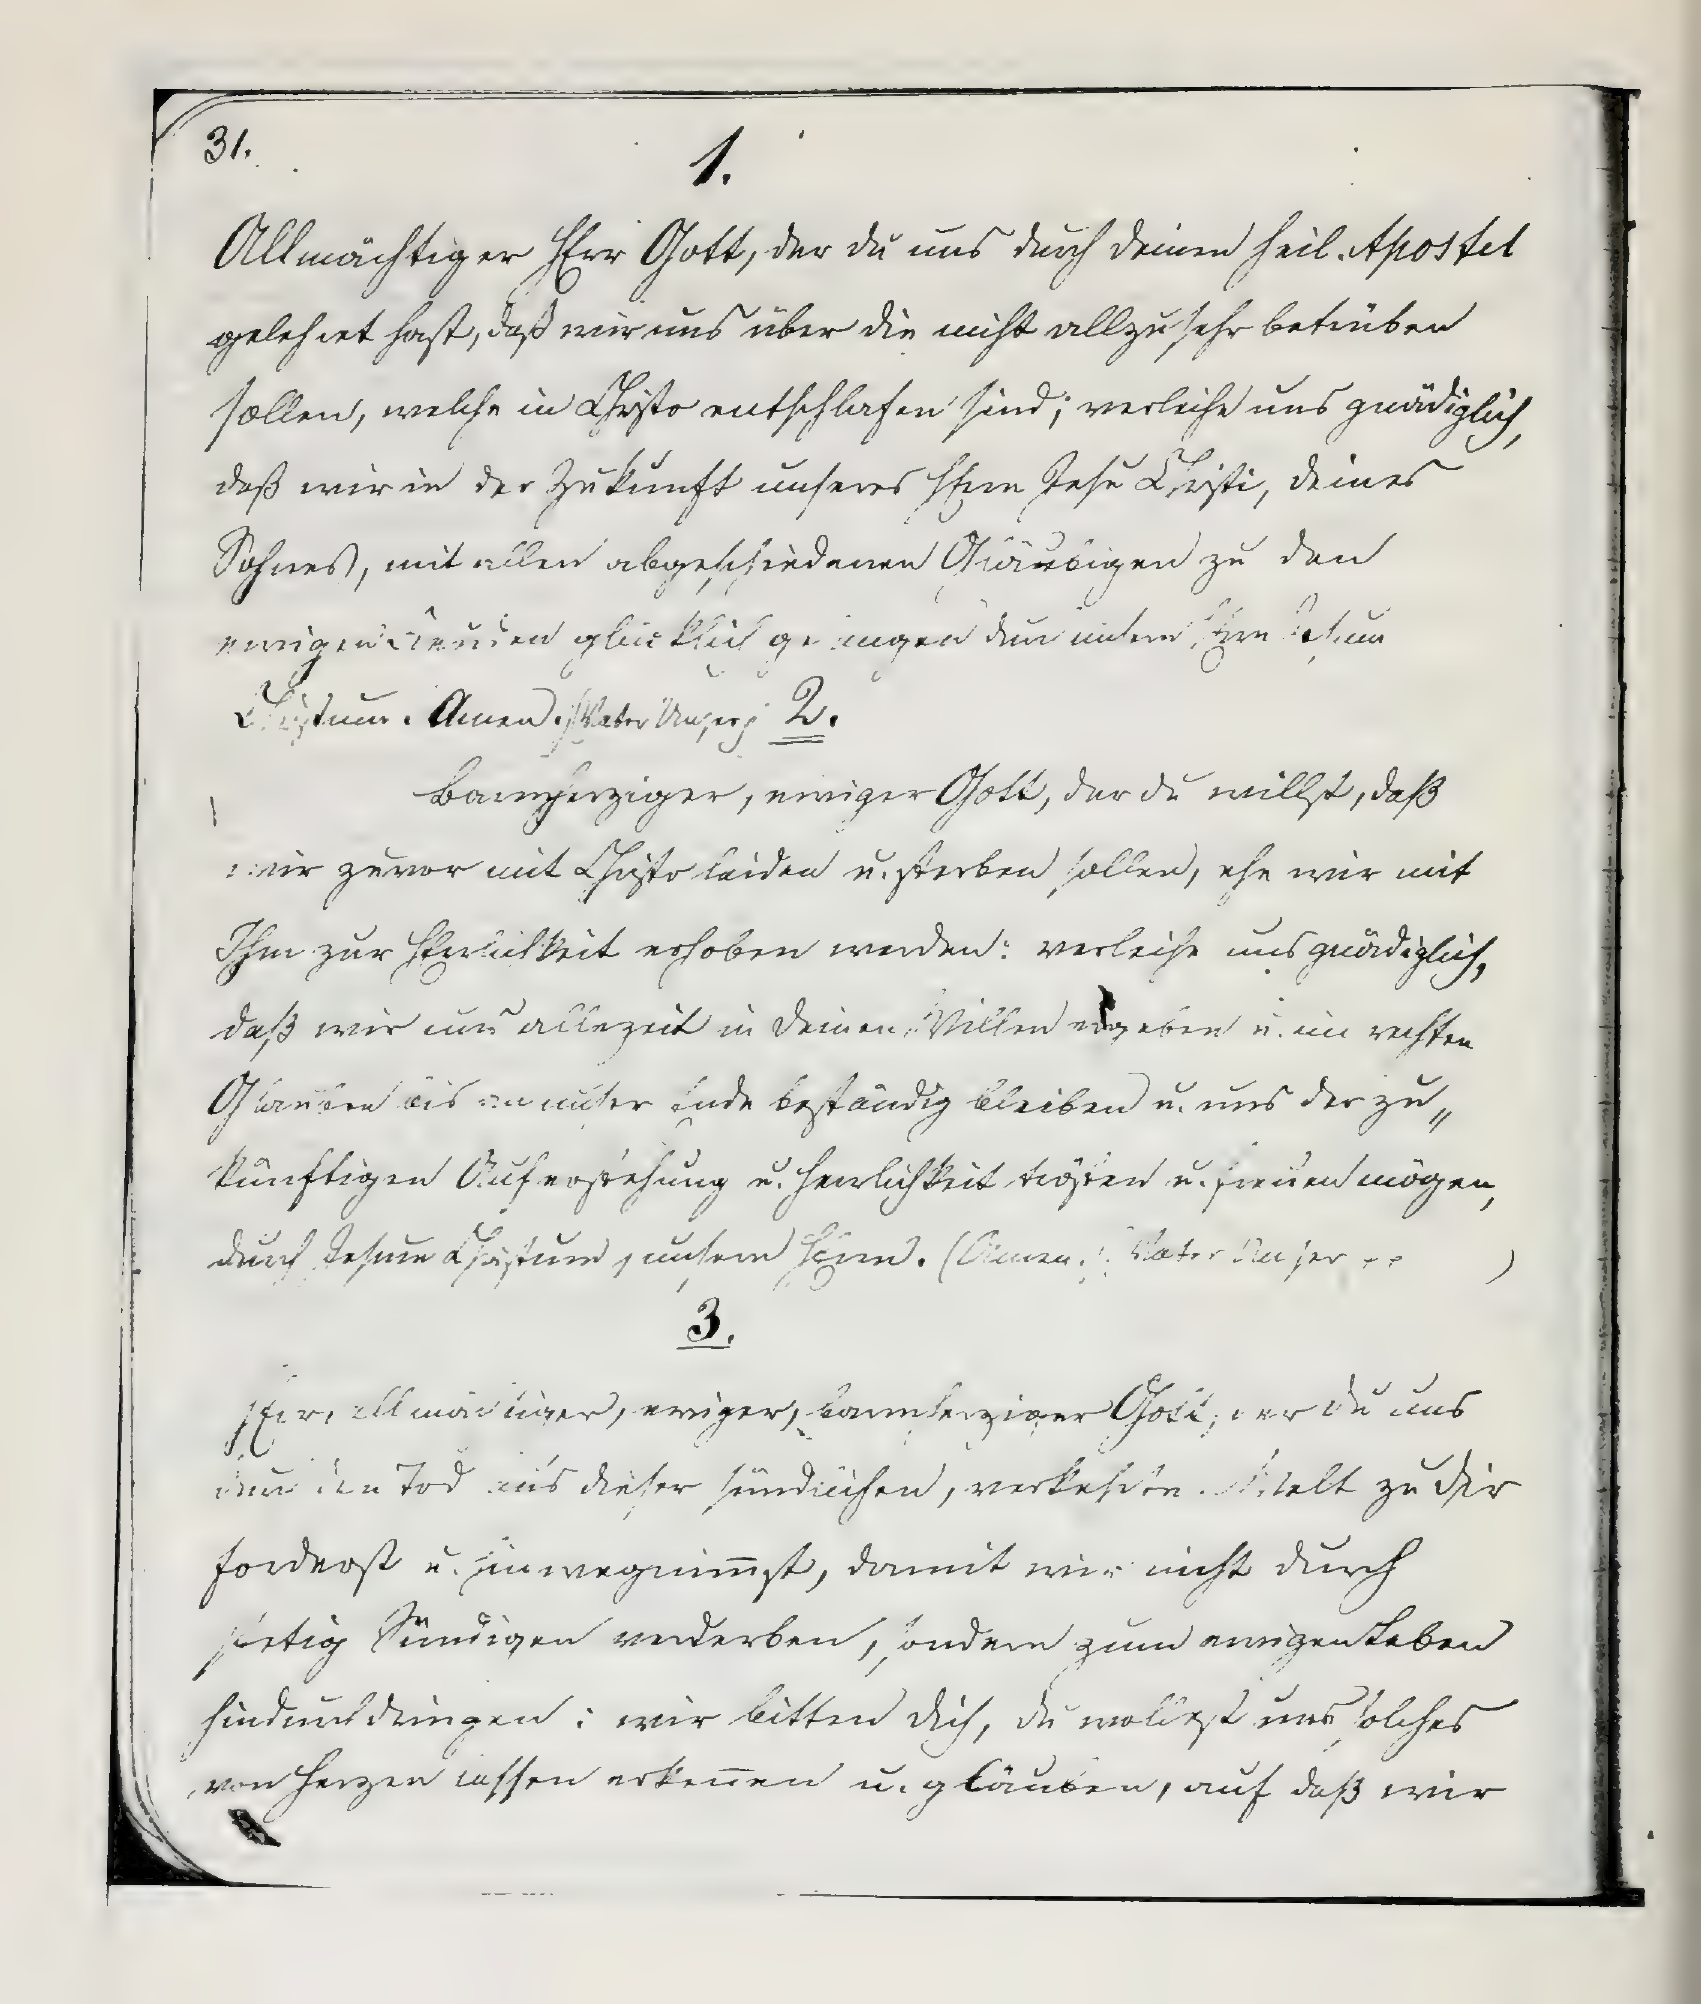 31.
1.
Allmächtiger HErr Gott, der du uns durch deinen heil. Apostel
gelehret hast, daß wir uns über die nicht allzusehr betrüben
sollen, welche in Christo entschlafen sind; verleihe uns gnädiglich,
daß wir in der Zukunft unseres HErrn Jesu Christi, deines
Sohnes, mit allen abgeschiedenen Gläubigen zu den
ewigen Freuden glücklich gelangen durch unsern HErrn Jesum
Christum. Amen. (Vater Unser) 2.
Barmherziger, ewiger Gott, der du willst, daß
wir zuvor mit Christo leiden u. sterben sollen, ehe wir mit
Ihm zur HErrlichkeit erhoben werden: verleihe uns gnädiglich,
daß wir uns allezeit in deinen Willen ergeben u. im rechten
Glauben bis an unser Ende beständig bleiben u. uns der zu„
künftigen Auferstehung u. Herrlichkeit trösten u. freuen mögen,
durch Jesum Christum, unsern HErrn. (Amen. Vater Unser )
3.
HErr, allmächtiger, ewiger, barmherziger Gott, der du uns
durch den Tod aus dieser sündlichen, verkehrten Welt zu dir
forderst u. hinwegnim̄st, damit wir nicht durch
stetig Sündigen verderben, sondern zum ewigen Leben
hindurchdringen: wir bitten dich, du wollest uns solches
von Herzen lassen erken̄en u. gläuben, auf daß wir